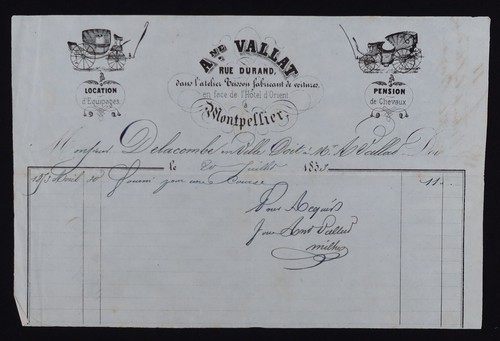 ANT. VALLAT
RUE DURAND,
dans l'atelier Boisson fabricant de voitures,
en face de l'Hôtel d'Orient,
à
Montpellier,
LOCATION
d'Equipages
PENSION
de Chevaux
Monsieur Delacombe en Ville Doit à Mr A Vallat
le 20 Juillet 1853
Avril 10 fourni pour une Course 11
Pour Acquis
Pour Ant Vallat